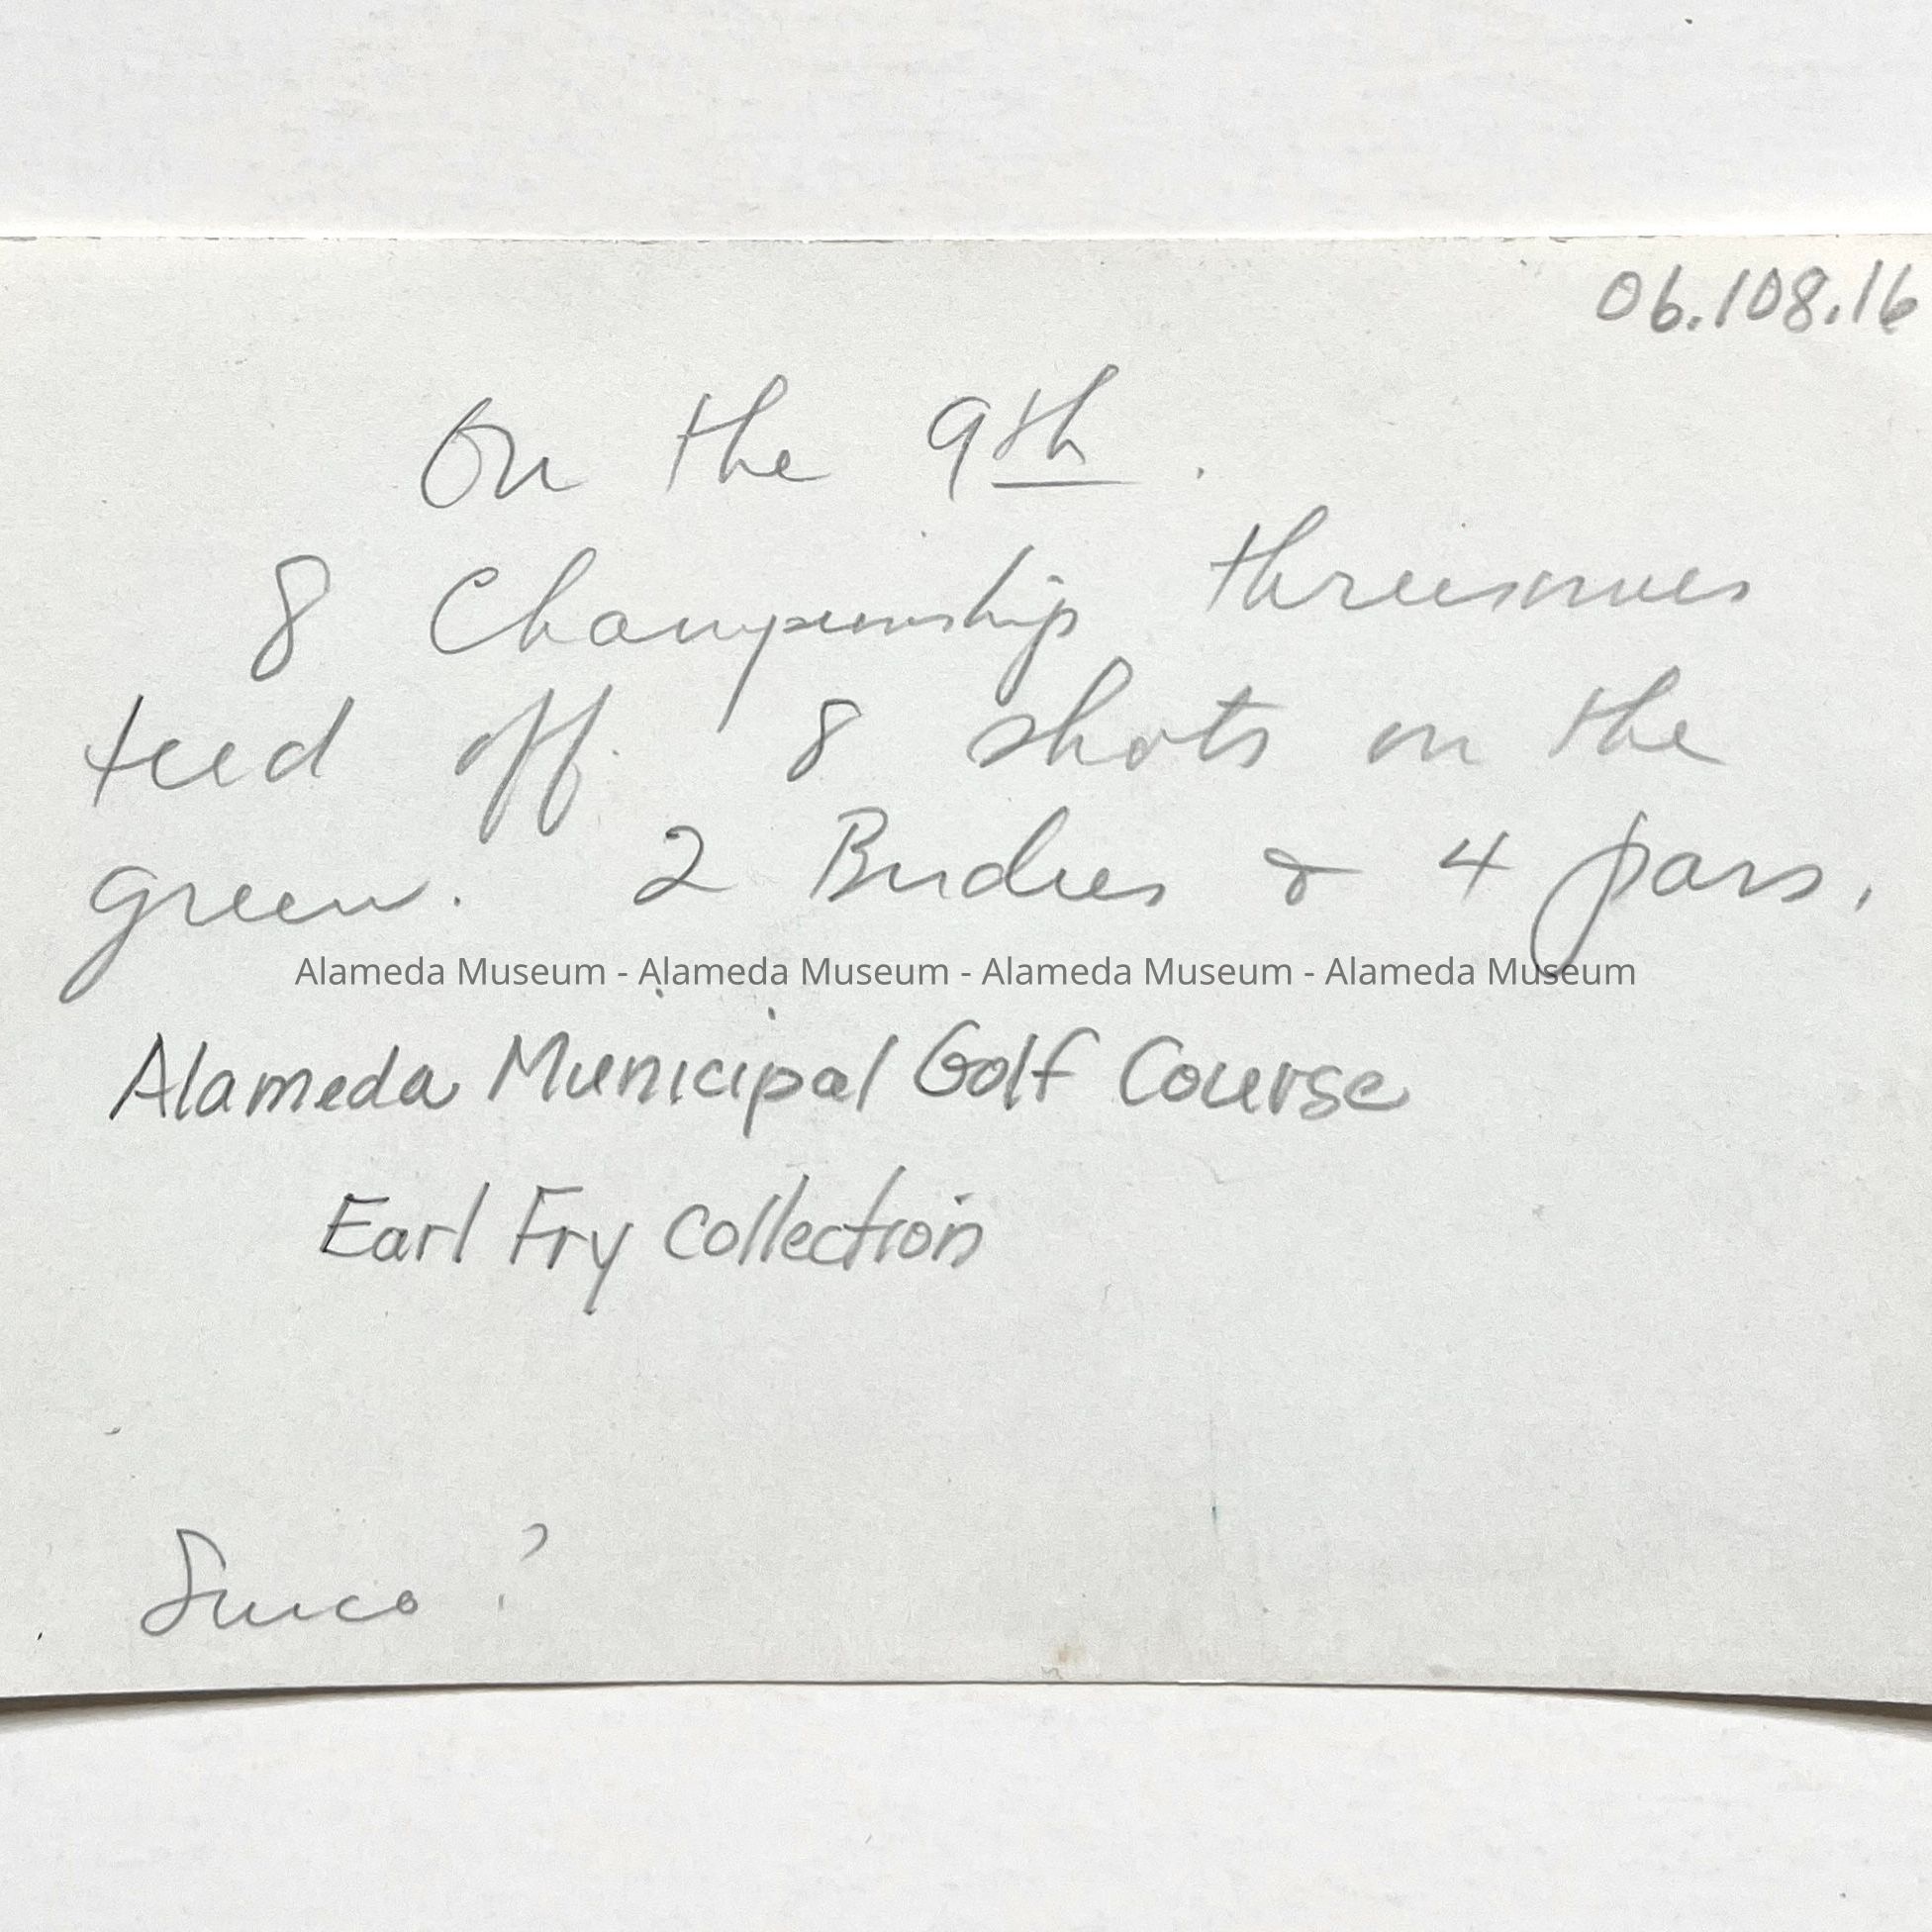 06.108.16
On the 9th.
8 Championship threesomes
teed off. 8 shots on the
green. 2 Birdies & 4 pars.
Alameda Museum - Alameda Museum - Alameda Museum - Alameda Museum
Alameda Municipal Golf Course
Earl Fry Collection
?